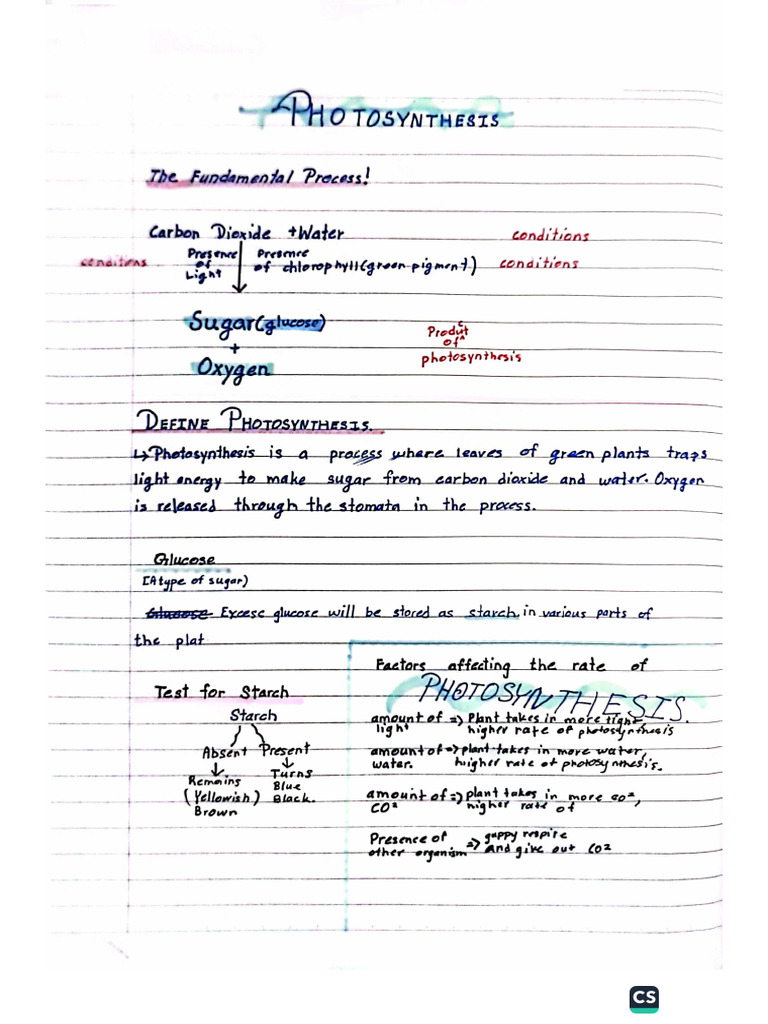 PHOTOSYNTHESIS
The Fundamental Process!
Carbon Dioxide + Water
conditions
conditions
Presence of Light
Presence of chlorophyll (green pigment)
conditions
Sugar (glucose)
+
Oxygen
Product
of
photosynthesis
DEFINE PHOTOSYNTHESIS.
↳ Photosynthesis is a process where leaves of green plants traps
light energy to make sugar from carbon dioxide and water. Oxygen
is released through the stomata in the process.
Glucose
[A type of sugar)
Glucose Excese glucose will be stored as starch in various parts of
the plat
Test for Starch
Starch
Absent Present
Remains
(Yellowish)
Brown
Turns
Blue
Black.
Factors affecting the rate of
PHOTOSYNTHESIS.
amount of light => Plant takes in more light,
higher rate of photosynthesis
amount of water. => plant takes in more water,
higher rate of photosynthesis.
amount of CO² => plant takes in more co²,
higher rate of
Presence of other organism => guppy respire
and give out CO2
CS